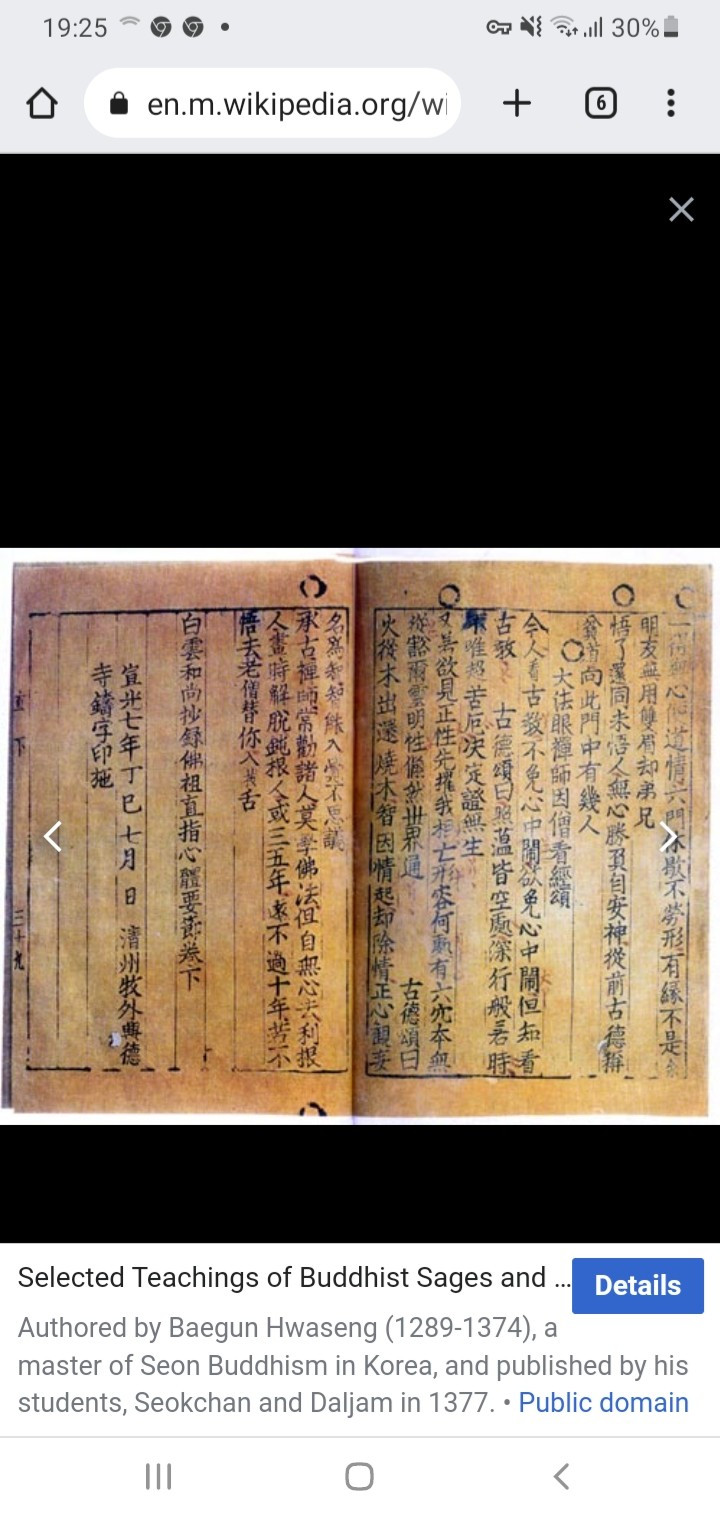 19:25
30%
en.m.wikipedia.org/wi
6
心 道情六門休歇不勞形有緣不是
用雙眉却弟兄
悟了還同未悟人無心勝負自安神從前古德稱
向此門中有幾人
大法眼禪師因僧看經頌
今人看古教不免心中鬧欲免心中鬧但知看
古教 古德頌曰照蘊皆空處深行般若時
唯超苦厄決定證無生
若欲見正性先摧我相亡形容何處有 究本無
豁爾雲明性翛然世界通 古德頌曰
火從木出還燒木智因情起却除情正心觀妄
名爲智智能入 不思議
承古禪師常勸諸人莫學佛法但自無心去利根
人晝時解脫鈍根人或三五年遠不過十年若不
悟去老僧替你入 舌
白雲和尚抄錄佛祖直指心體要節卷下
宣光七年丁巳七月 日 淸州牧外興德
寺鑄字印施
下 三十九
Selected Teachings of Buddhist Sages and ...
Details
Authored by Baegun Hwaseng (1289-1374), a
master of Seon Buddhism in Korea, and published by his
students, Seokchan and Daljam in 1377. • Public domain